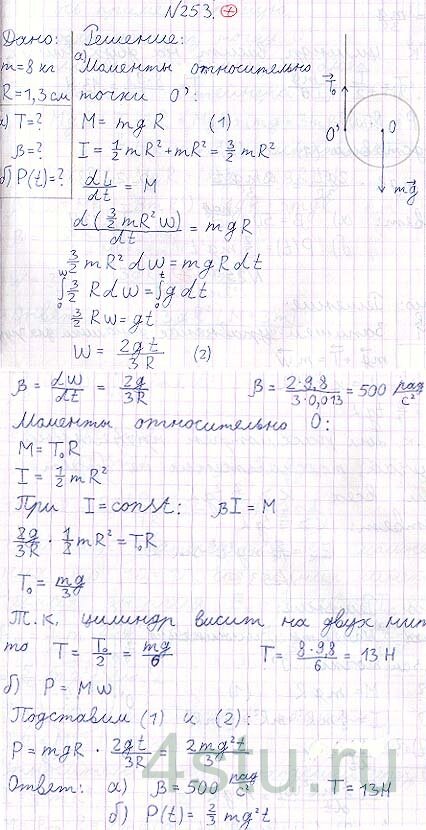 N253. +
Дано: Решение:
m=8 кг а) Моменты относительно
R=1,3 см точки O':
а) T=? M = mgR (1)
β=? I = 1/2 mR² + mR² = 3/2 mR²
б) P(t)=? dL/dt = M
d(3/2 mR²W)/dt = mgR
3/2 mR² dW = mgR dt
∫₀ᵂ 3/2 R dW = ∫₀ᵗ g dt
3/2 RW = gt
W = 2gt/3R (2)
T⃗₀
O' O
mg⃗
β = dW/dt = 2g/3R β = 2·9,8/3·0,013 = 500 рад/с²
Моменты относительно O:
M = T₀R
I = 1/2 mR²
При I = const: βI = M
2g/3R · 1/2 mR² = T₀R
T₀ = mg/3
Т.к. цилиндр висит на двух нит
то T = T₀/2 = mg/6 T = 8·9,8/6 = 13 Н
б) P = Mω
Подставим (1) и (2):
P = mgR · 2gt/3R = 2mg²t/3
Ответ: а) β = 500 рад/с² T = 13Н
б) P(t) = 2/3 mg²t
4stu.ru